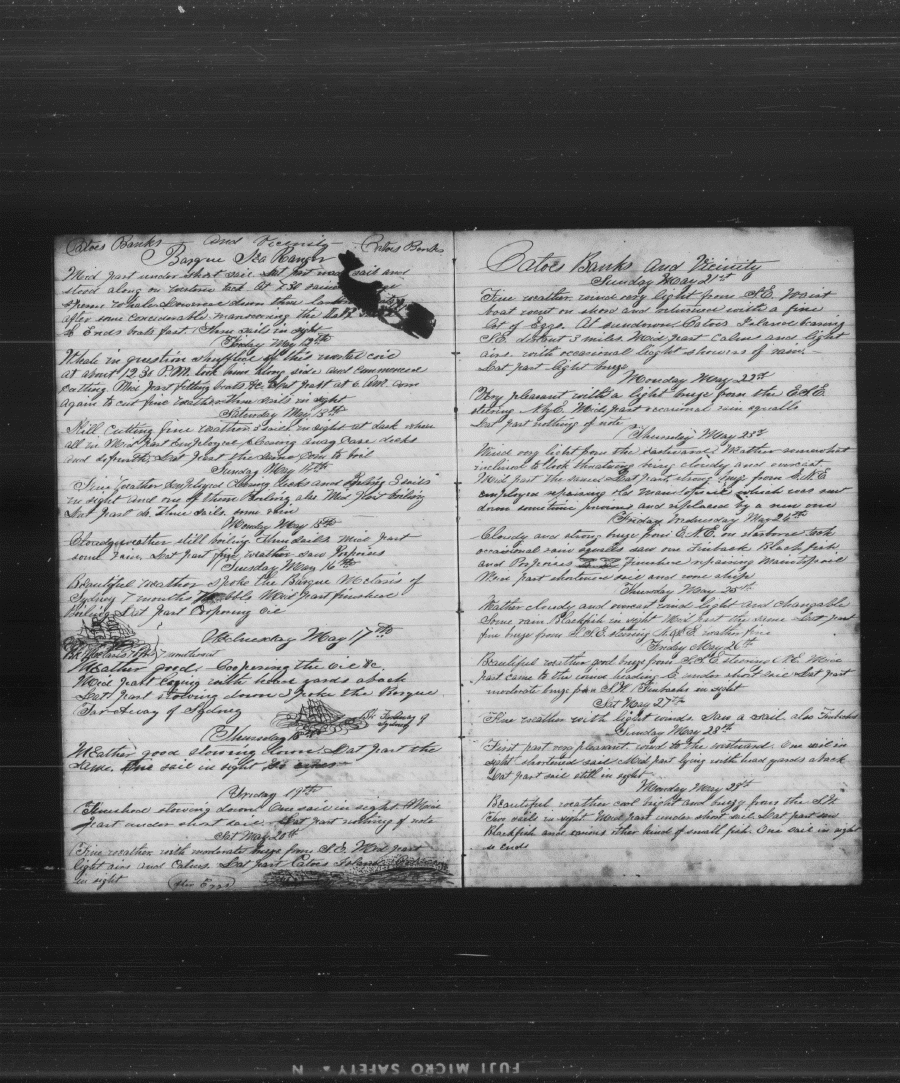 Catoes Banks and Vicinity Catoes Banks
Barque Sea Ranger
Mid part under short sail. Last part made sail and
stood along on
Sperm Whales Lowered down three
after some considerable manouvering the
& Ends boats fast. Three sails in sight
Friday May 12th
Whale in question
at about 12.30 P.M. took him along side and commenced
cutting. Mid part fitting boats &c. Last part at 6 AM
again to cut fine weather three sails in sight
Saturday May 13th
Still cutting fine weather 3 sails in sight at dark when
all in Mid part employed clearing away decks
and Last part the same
Sunday May 14th
Fine weather Employed clearing decks and boiling 3 sails
in sight and one of them boiling also Mid part boiling
Last part do three sails some rain
Monday May 15th
Cloudy weather still boiling three sails Mid part
some rain. Last part fine weather saw Porpoises
Tuesday May 16th
Beautiful weather spoke the Barque of
Sydney 7 months Mid part finished
Boiling. Last part Coopering Oil
Wednesday May 17th
7 months out
Weather good. Coopering the oil &c.
Mid part laying with head yards aback
Last part stowing down spoke the Barque
Far Away of Sydney
Sydney of
Thursday 18th
Weather good stowing down. Last part the
same. One sail in sight
Friday 19th
Finished stowing down. One sail in sight. Mid
part under short sail. Last part nothing of note
Sat May 20th
Fine weather with moderate breeze from S.E. Mid part
light airs and Calms. Last part Catoes Island
in sight
Catoes Banks and Vicinity
Sunday May 21st
Fine weather wind very light from S.E. Waist
boat went on shore and returned with a fine
lot of Eggs. At sundown Catoes Island bearing
S.E. distant 5 miles. Mid part Calms and light
airs with occasional light showers of rain.
Last part light breeze
Monday May 22nd
Very pleasant with a light breeze from the E.S.E.
steering Mid part occasional rain squalls
Last part nothing of note
Thursday May 23rd
Wind very light from the Eastward. Weather somewhat
inclined to look threatening very cloudy and overcast
Mid part the same. Last part strong breeze from
employed repairing the main topsail which was sent
down sometime previous and replaced by a new one
Friday Wednesday May 24th
Cloudy and strong breeze from E.N.E. on starboard tack
occasional rain squalls saw one Finback Blackfish
and Porpoises finished repairing Maintopsail
part shortened sail and wore ship
Thursday May 25th
Weather cloudy and overcast wind light and changable
Some rain Blackfish in sight Mid part the same Last part
fine breeze from weather fine
Friday May 26th
Beautiful weather and breeze from steering N.E. Mid
part came to the wind heading under short sail Last part
moderate breeze from S.W. Finbacks in sight
Sat May 27th
Fine weather with light winds. Saw a sail also Finbacks
Sunday May 28th
First part very pleasant. wind to the westward. One sail in
sight shortened sail. Mid part lying with head yards aback
Last part sail still in sight
Monday May 29th
Beautiful weather cool night and breeze from the S.W.
Two sails in sight. Mid part under short sail. Last part saw
Blackfish and various other kind of small fish. One sail in sight
so ends
FUJI MICRO SAFETY N